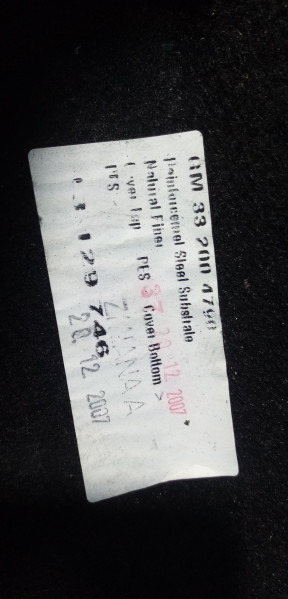 GM 33 200 4790
Reinforcemet Steel Substrate
Natural Fiber PES Cover Bottom >
37 20.12.2007 *
Cover Top
PES -
ZIMANA A
129 746
20.12 2007